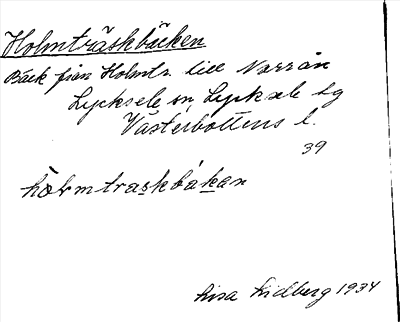 Holmträskbäcken
Bäck från Holmtr. till Norrån
Lycksele sn, Lycksele lg
Västerbottens l.
39
hɷlmtraskbákan
Lisa Lidberg 1934